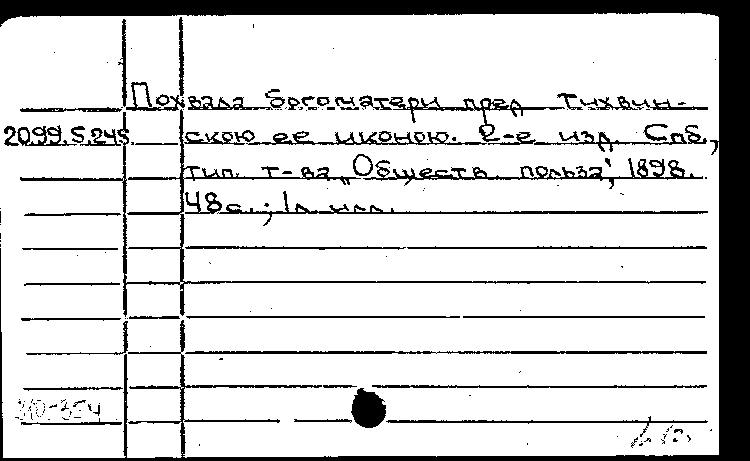 Похвала богоматери пред Тихвин-
2099.5.245 скою ее иконою. 2-е изд. Спб.,
тип. т-ва „Обществ. польза", 1898.
48 с.; 1 л. илл.
310-354